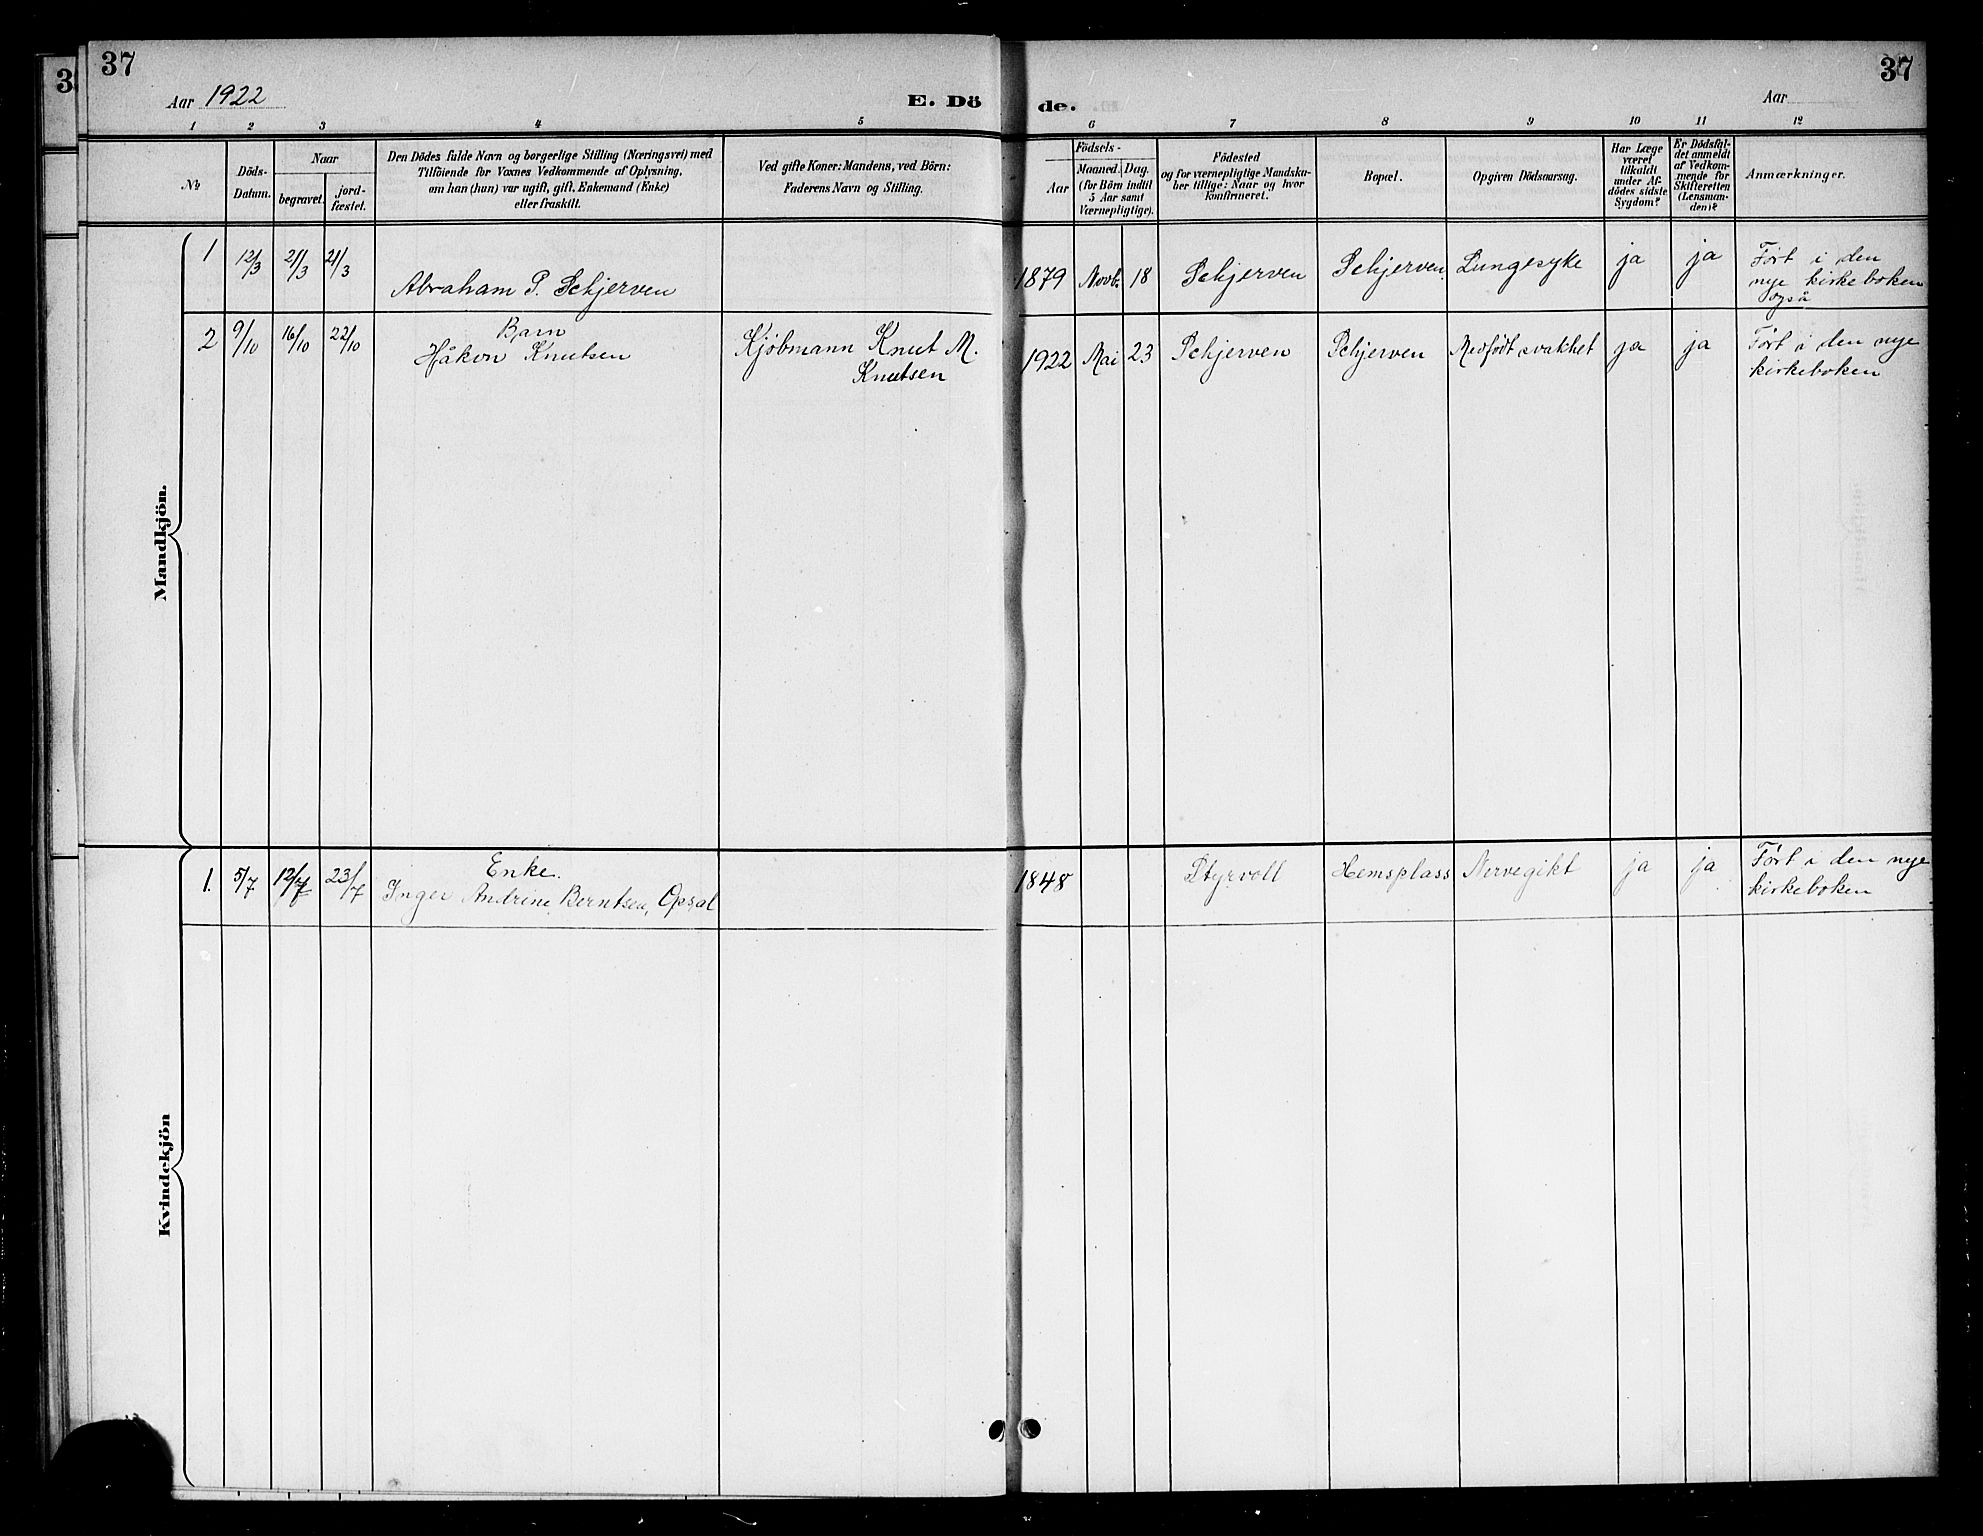 37
37
3
Aar 1922
E. Dö
de.
Aar
1 2 3 4 5 6 7 8 9 10 11 12
№
Döds-
Datum.
Naar
begravet.
jord-
fæstet.
Den Dödes fulde Navn og borgerlige Stilling (Næringsvei) med
Tilföiende for Voxnes Vedkommende af Oplysning,
om han (hun) var ugift, gift, Enkemand (Enke)
eller fraskilt.
Ved gifte Koner: Mandens, ved Börn:
Faderens Navn og Stilling.
Födsels-
Aar
Maaned. Dag.
(for Börn indtil
5 Aar samt
Værnepligtige).
Födested
og for værnepligtige Mandska-
ber tillige: Naar og hvor
Konfirmeret.
Bopæl.
Opgiven Dödsaarsag.
Har Læge
været
tilkaldt
under Af-
dödes sidste
Sygdom?
Er Dödsfal-
det anmeldt
af Vedkom-
mende for
Skifteretten
(Lensman-
den)?
Anmærkninger.
Mandkjön.
1 12/3 21/3 21/3 Abraham P. Schjerven 1879 Novb. 18 Schjerven Schjerven Lungesyke ja ja Ført i den
nye kirkeboken
også
Barn
2 9/10 16/10 22/10 Håkon Knutsen Kjöbmann Knut M.
Knutsen
1922 Mai 23 Schjerven Schjerven Medfödt svakhet ja ja Ført i den nye
kirkeboken
Kvindekjön
Enke.
1. 5/7 12/7 23/7 Inger Andrine Berntsen, Opsal 1848 Styrvoll Hemsplass Nervegikt ja ja Ført i den nye
kirkeboken